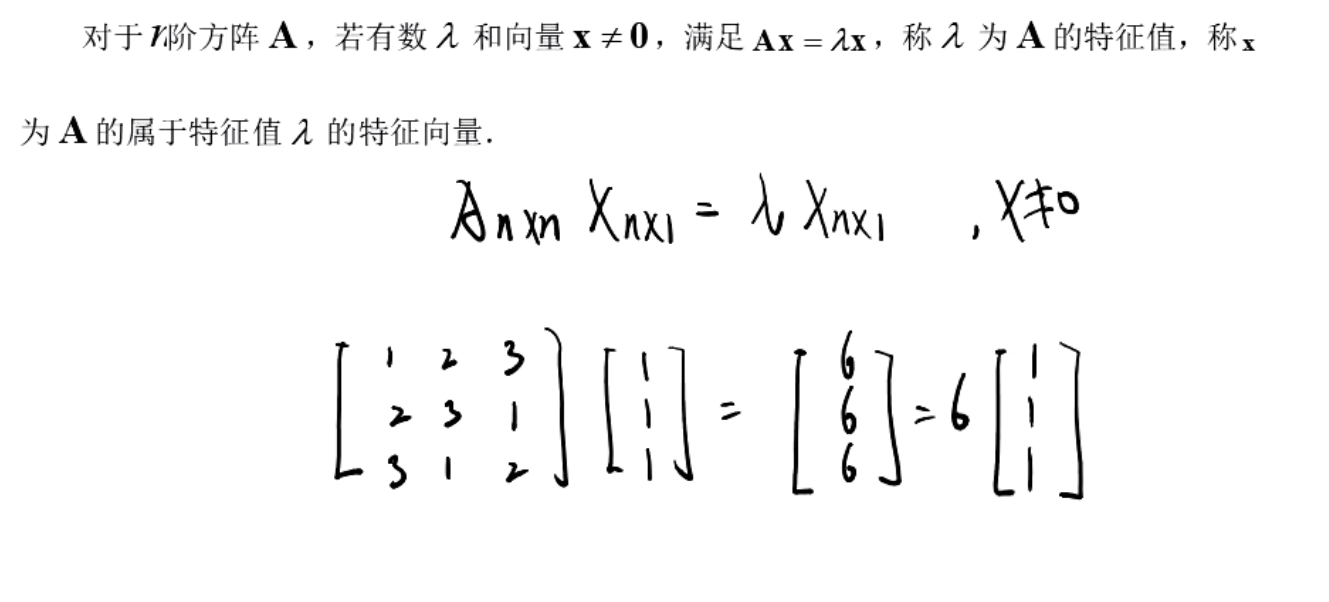 对于n阶方阵 A，若有数 λ 和向量 x ≠ 0，满足 Ax = λx，称 λ 为 A 的特征值，称 x
为 A 的属于特征值 λ 的特征向量．
Aₙₓₙ Xₙₓ₁ = λ Xₙₓ₁ , X≠0
[1 2 3; 2 3 1; 3 1 2] [1; 1; 1] = [6; 6; 6] = 6 [1; 1; 1]